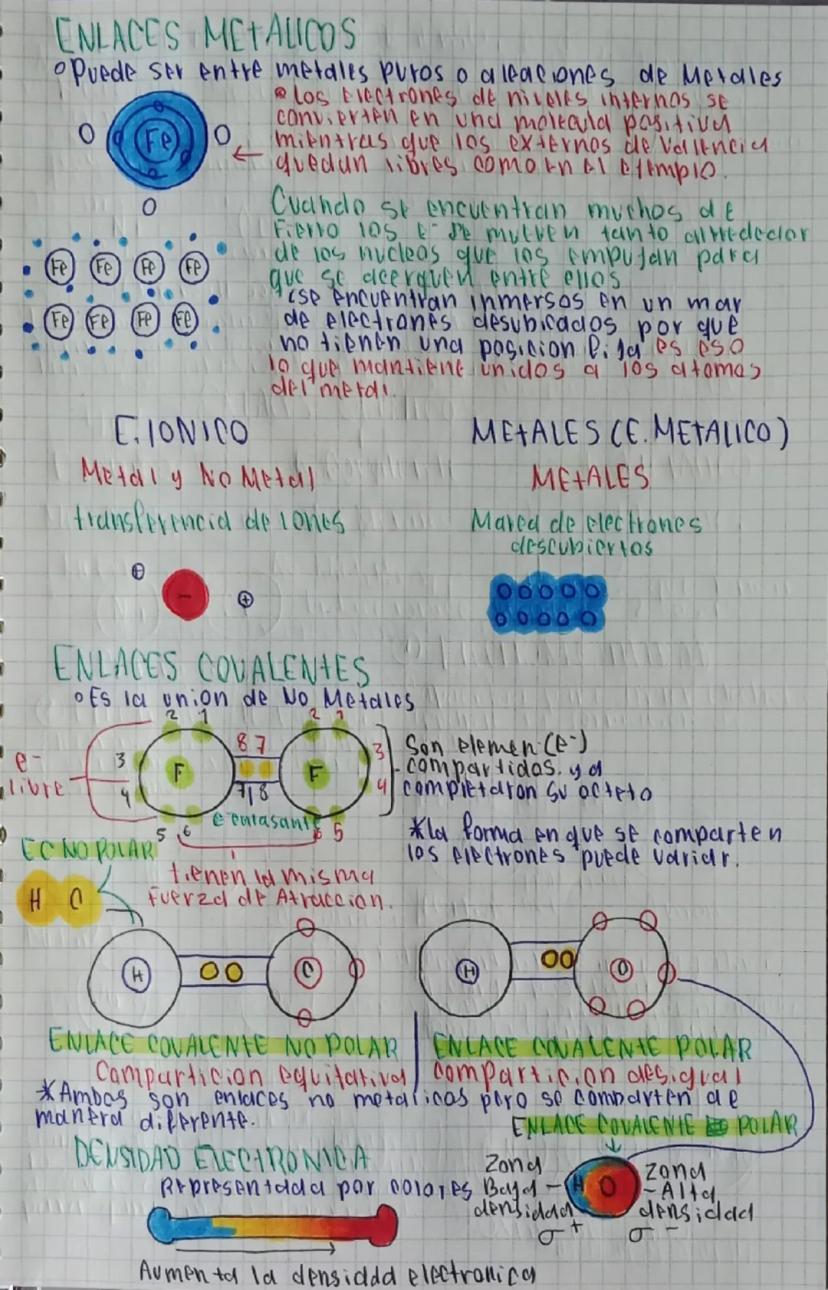 ENLACES METALICOS
Puede ser entre metales puros o aleaciones de Metales
Los Electrones de niveles internos se
convierten en una molecula positiva
mientras que los externos de Valencia
quedan libres como en el ejemplo.
Fe
Cuando se encuentran muchos de
Fierro los e- se mueven tanto alrededor
de los nucleos que los empujan para
que se acerquen entre ellos
Fe Fe Fe Fe
Fe Fe Fe Fe
se encuentran inmersos en un mar
de electrones desubicados por que
no tienen una posicion fija es eso
lo que mantiene unidos a los atomos
del metal.
E. IONICO
METALES (E. METALICO)
Metal y No Metal
METALES
transferencia de iones
Marea de electrones
descubiertos
+ - +
ENLACES COVALENTES
Es la union de No Metales
2 1 2 1
3 8 7 3
e-
libre
F F
4 7 8 4
5 6 6 5
e- enlasante
Son elemen (e-)
compartidos. y a
completaron su octeto
*la forma en que se comparten
los electrones puede variar.
EC NO POLAR
tienen la misma
Fuerza de Atraccion.
H C
H C
H O
ENLACE COVALENTE NO POLAR
ENLACE COVALENTE POLAR
Comparticion equitativa
comparticion desigual
*Ambos son enlaces no metalicos pero se comparten de
manera diferente.
ENLACE COVALENTE POLAR
DENSIDAD ELECTRONICA
Representada por colores
Zona
Baja -
densidad
σ +
H O
Zona
- Alta
densidad
σ -
Aumenta la densidad electronica